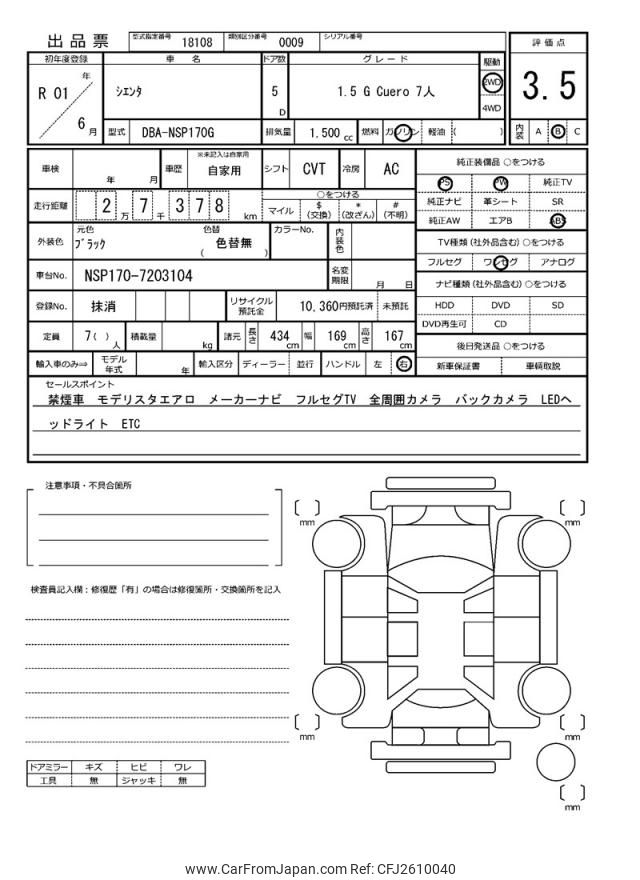 出品票 型式指定番号 18108 類別区分番号 0009 シリアル番号
評価点
3.5
初年度登録 車名 ドア数 グレード 駆動
R 01 年 6 月
シエンタ 5 D 1.5 G Cuero 7人 2WD
4WD
型式 DBA-NSP170G 排気量 1.500 cc 燃料 ガソリン 軽油 ( )
内装 A B C
車検 年 月 車歴 ※未記入は自家用 自家用 シフト CVT 冷房 AC
純正装備品 ○をつける
PS PW 純正TV
純正ナビ 革シート SR
純正AW エアB ABS
走行距離 2 万 7 千 3 7 8 km
○をつける
マイル $ (交換) * (改ざん) # (不明)
外装色 元色 ブラック 色替 ( 色替無 ) カラーNo. 内装色
TV種類 (社外品含む) ○をつける
フルセグ ワンセグ アナログ
車台No. NSP170-7203104 名変期限 月 日
ナビ種類 (社外品含む) ○をつける
HDD DVD SD
DVD再生可 CD
登録No. 抹消 リサイクル預託金 10,360円預託済 未預託
定員 7( ) 人 積載量 kg 諸元 長さ 434 cm 幅 169 cm 高さ 167 cm
後日発送品 ○をつける
新車保証書 車輌取説
輸入車のみ⇒ モデル年式 年 輸入区分 ディーラー 並行 ハンドル 左 右
セールスポイント
禁煙車 モデリスタエアロ メーカーナビ フルセグTV 全周囲カメラ バックカメラ LEDヘ
ッドライト ETC
注意事項・不具合箇所
検査員記入欄：修復歴「有」の場合は修復箇所・交換箇所を記入
mm
mm
mm
mm
mm
ドアミラー キズ ヒビ ワレ
工具 無 ジャッキ 無
www.CarFromJapan.com Ref: CFJ2610040